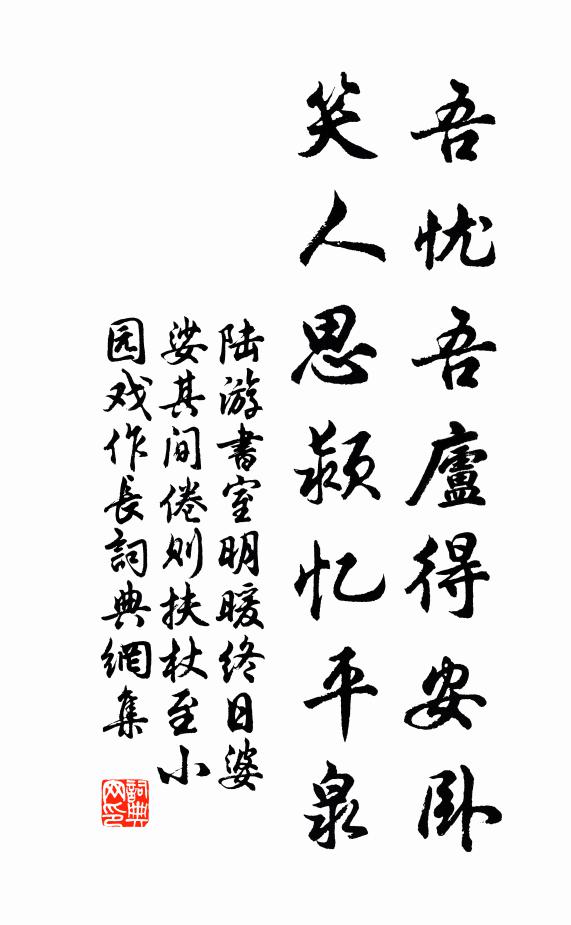 吾忧吾廬得安卧
笑人思颍忆平泉
陆游書室明暖终日婆
娑其间倦则扶杖至小
园戏作長詞典網集
詞典
网印